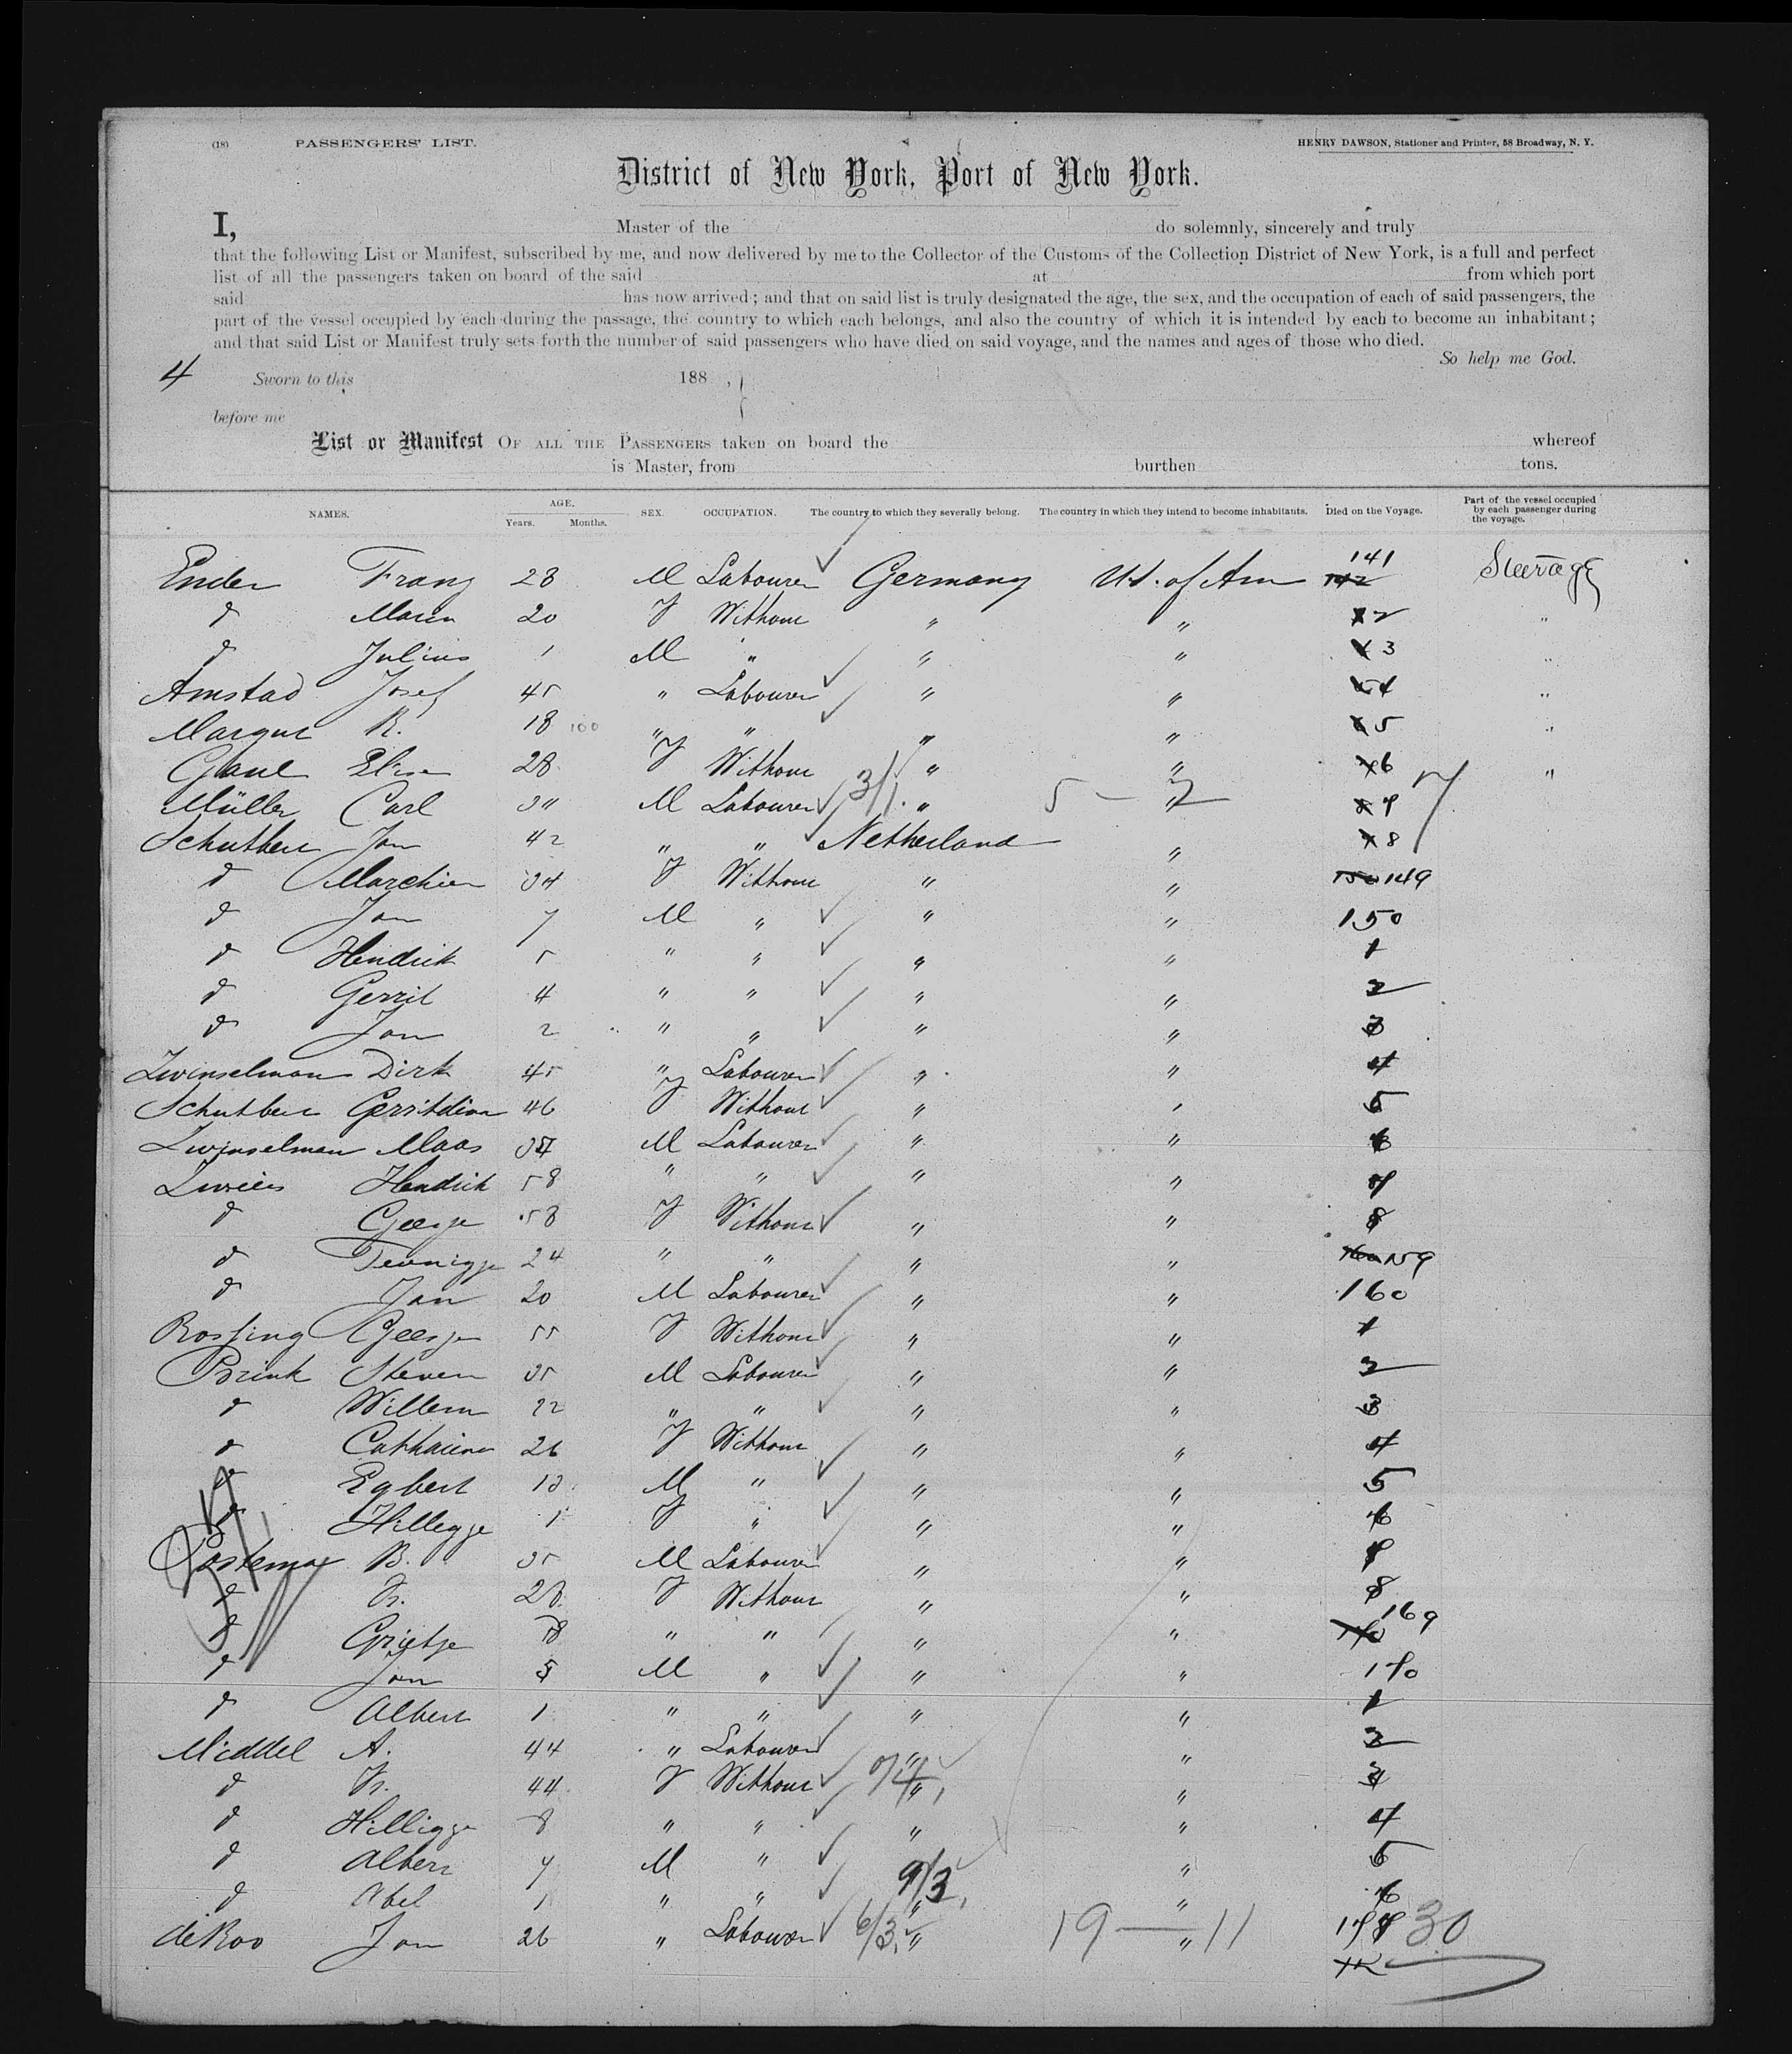 (18) PASSENGERS' LIST. HENRY DAWSON, Stationer and Printer, 58 Broadway, N. Y.
District of New York, Port of New York.
I, Master of the do solemnly, sincerely and truly
that the following List or Manifest, subscribed by me, and now delivered by me to the Collector of the Customs of the Collection District of New York, is a full and perfect
list of all the passengers taken on board of the said at from which port
said has now arrived; and that on said list is truly designated the age, the sex, and the occupation of each of said passengers, the
part of the vessel occupied by each during the passage, the country to which each belongs, and also the country of which it is intended by each to become an inhabitant;
and that said List or Manifest truly sets forth the number of said passengers who have died on said voyage, and the names and ages of those who died.
So help me God.
4 Sworn to this 188 ,
before me
List or Manifest OF ALL THE PASSENGERS taken on board the whereof
is Master, from burthen tons.
NAMES. AGE. Years. Months. SEX. OCCUPATION. The country to which they severally belong. The country in which they intend to become inhabitants. Died on the Voyage. Part of the vessel occupied by each passenger during the voyage.
Ender Franz 28 M Labourer Germany U.S. of Am 141 Steerage
d Maria 20 F Without " " 2 "
d Julius 1 M " " " 3 "
Amstad Josef 45 " Labourer " " 4 "
R. 18 " " " " 5 "
Elise 28 F Without " " 6 "
Müller Carl M Labourer 3/1. " 5 — 2 " 7 7
Jan 42 " " Netherland " 8
d 34 F Without " " 149
d Jan 7 M " " " 150
d Hendrik 5 " " " " 1
d Gerrit 4 " " " " 2
d Jan 2 " " " " 3
Zwinselman Dirk 45 " Labourer " " 4
46 F Without " " 5
Zwinselman Maas M Labourer " " 6
Hendrik 58 " " " " 7
d Geesje 58 F Without " " 8
d 24 " " " " 159
d Jan 20 M Labourer " " 160
Rossing Geesje 55 F Without " " 1
Brink Steven 35 M Labourer " " 2
d Willem 22 " " " " 3
d Catharina 26 F Without " " 4
d Egbert M " " " 5
d Hillegje 1 F " " " 6
Postema B. 35 M Labourer " " 7
d 28 F Without " " 8
d Grietje " " " " 169
d Jan 5 M " " " 170
d Albert 1 " " " " 1
Middel A. 44 " Labourer " " 2
d 44 F Without " " 3
d Hilligje 8 " " " " 4
d Albert 7 M " " " 5
d Abel 1 " " 9/3 " " 6
de Roo Jan 26 " Labourer 6/3. " 19 — 11 " 177 30